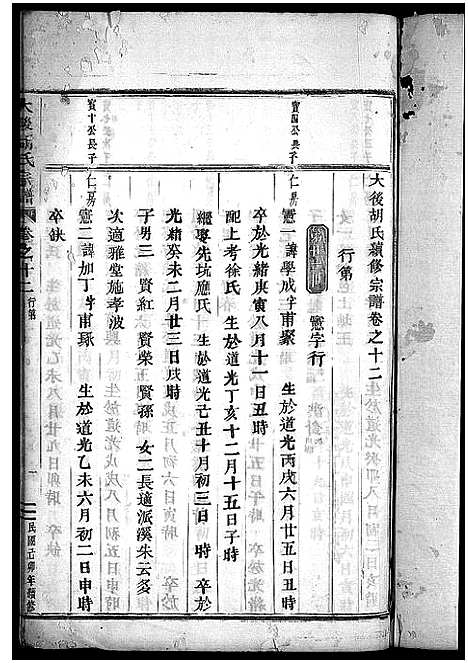 大後胡氏續修宗譜卷之十二
行第
憲字行
寶四公長子
仁房
憲一諱學成字甫聚 生於道光丙戌六月廿五日丑時
卒於光緒庚寅八月十一日丑時
配上考徐氏 生於道光丁亥十二月十五日子時
繼娶先坑應氏 生於道光己丑十月初三日 時 卒於
光緒癸未二月廿三日戌時
子男三 賢紅 賢榮 賢孫 女二長適派溪朱云多
次適雅堂施孝波
寶十公長子
仁房
憲二諱加丁字甫琢 生於道光乙未六月初二日申時
卒缺
大後胡氏宗譜
卷之十二
行第
一
民國己卯年續修